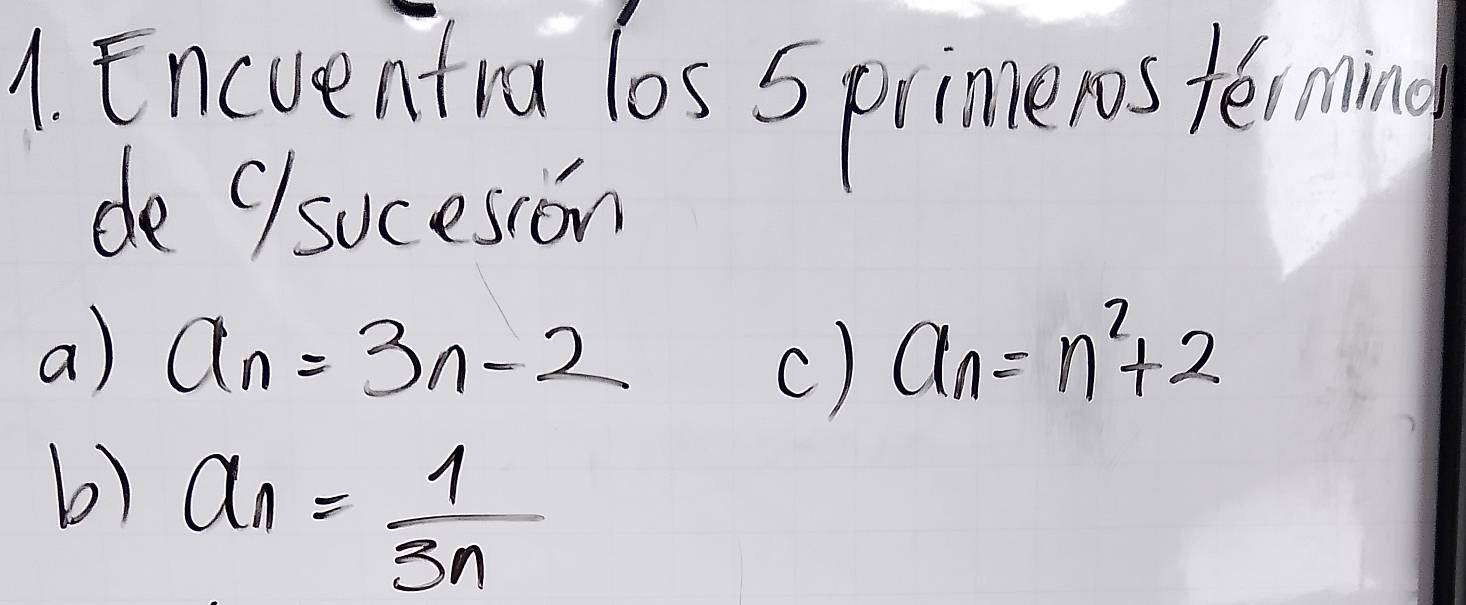 1. Encuentra los 5 primeros términos
de c/sucesión
a) an = 3n - 2
c) an = n² + 2
b) an = 1/3n